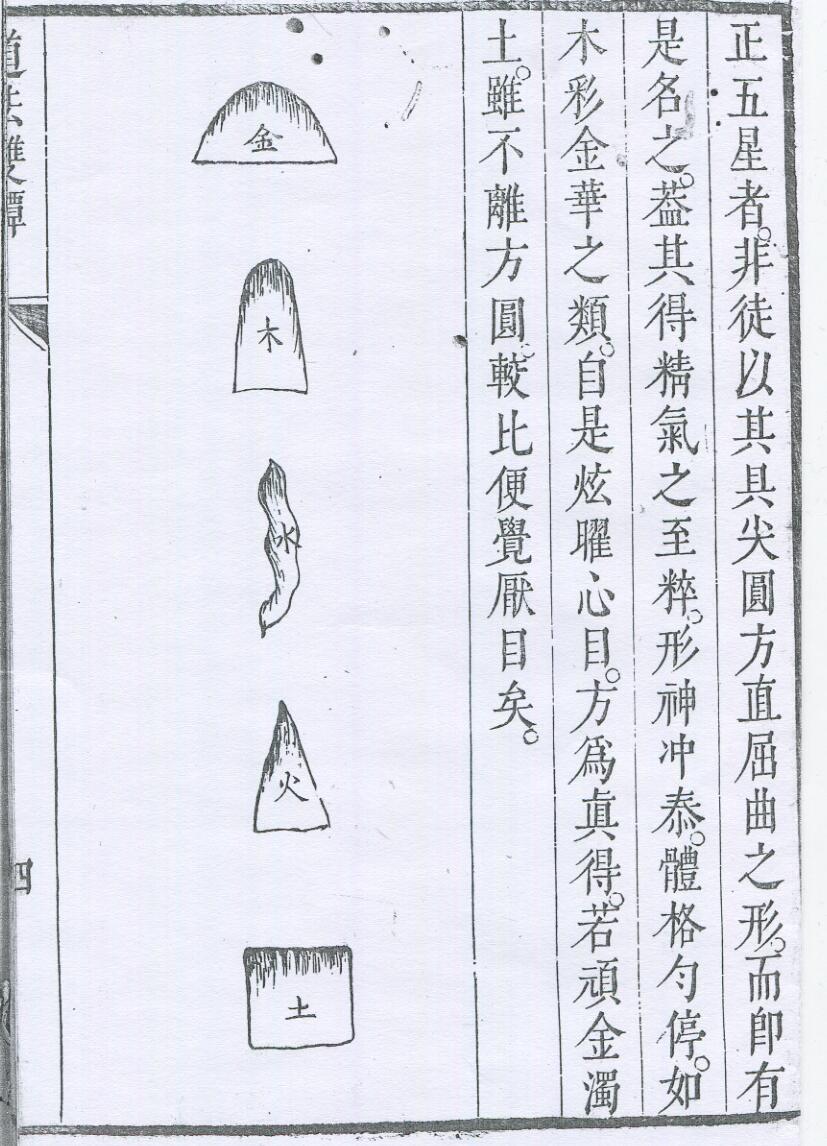 正五星者。非徒以其具尖圓方直屈曲之形。而卽有
是名之。葢其得精氣之至粹。形神冲泰。體格勻停。如
木彩金華之類。自是炫曜心目。方爲眞得。若頑金濁
土。雖不離方圓。較比便覺厭目矣。
金
木
水
火
土
道法雙譚
四